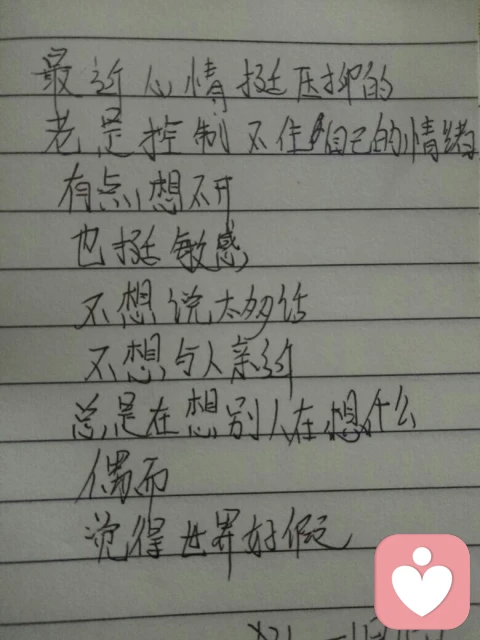 最近心情挺压抑的
老是控制不住自己的情绪
有点想不开
也挺敏感
不想说太多话
不想与人亲近
总是在想别人在想什么
偶而
觉得世界好假